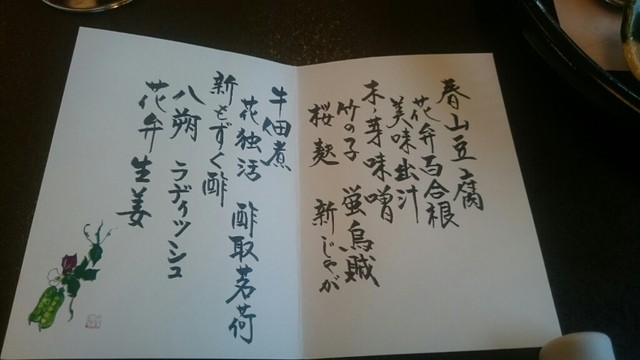 春山豆腐
花弁百合根
美味出汁
木ノ芽味噌
竹の子 蛍烏賊
桜麩 新じゃが
牛佃煮
花独活 酢取茗荷
新もずく酢
八朔 ラディッシュ
花弁生姜